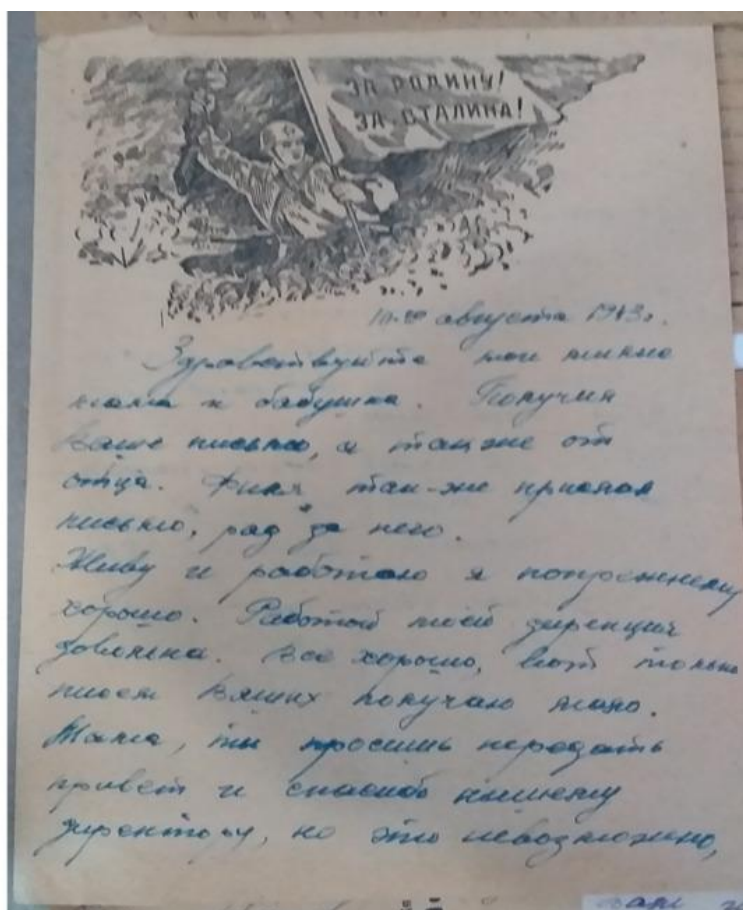 ЗА РОДИНУ!
ЗА СТАЛИНА!
августа 1943г.
Здравствуйте мои милые
мама и бабушка. Получил
Ваше письмо, а также от
отца. так-же прислал
письмо, рад за него.
Живу и работаю я попрежнему
хорошо. Работой моей дирекция
довольна. Все хорошо, вот только
писем Ваших получаю мало.
Мама, ты просишь передать
привет и спасибо нашему
директору, но это невозможно,